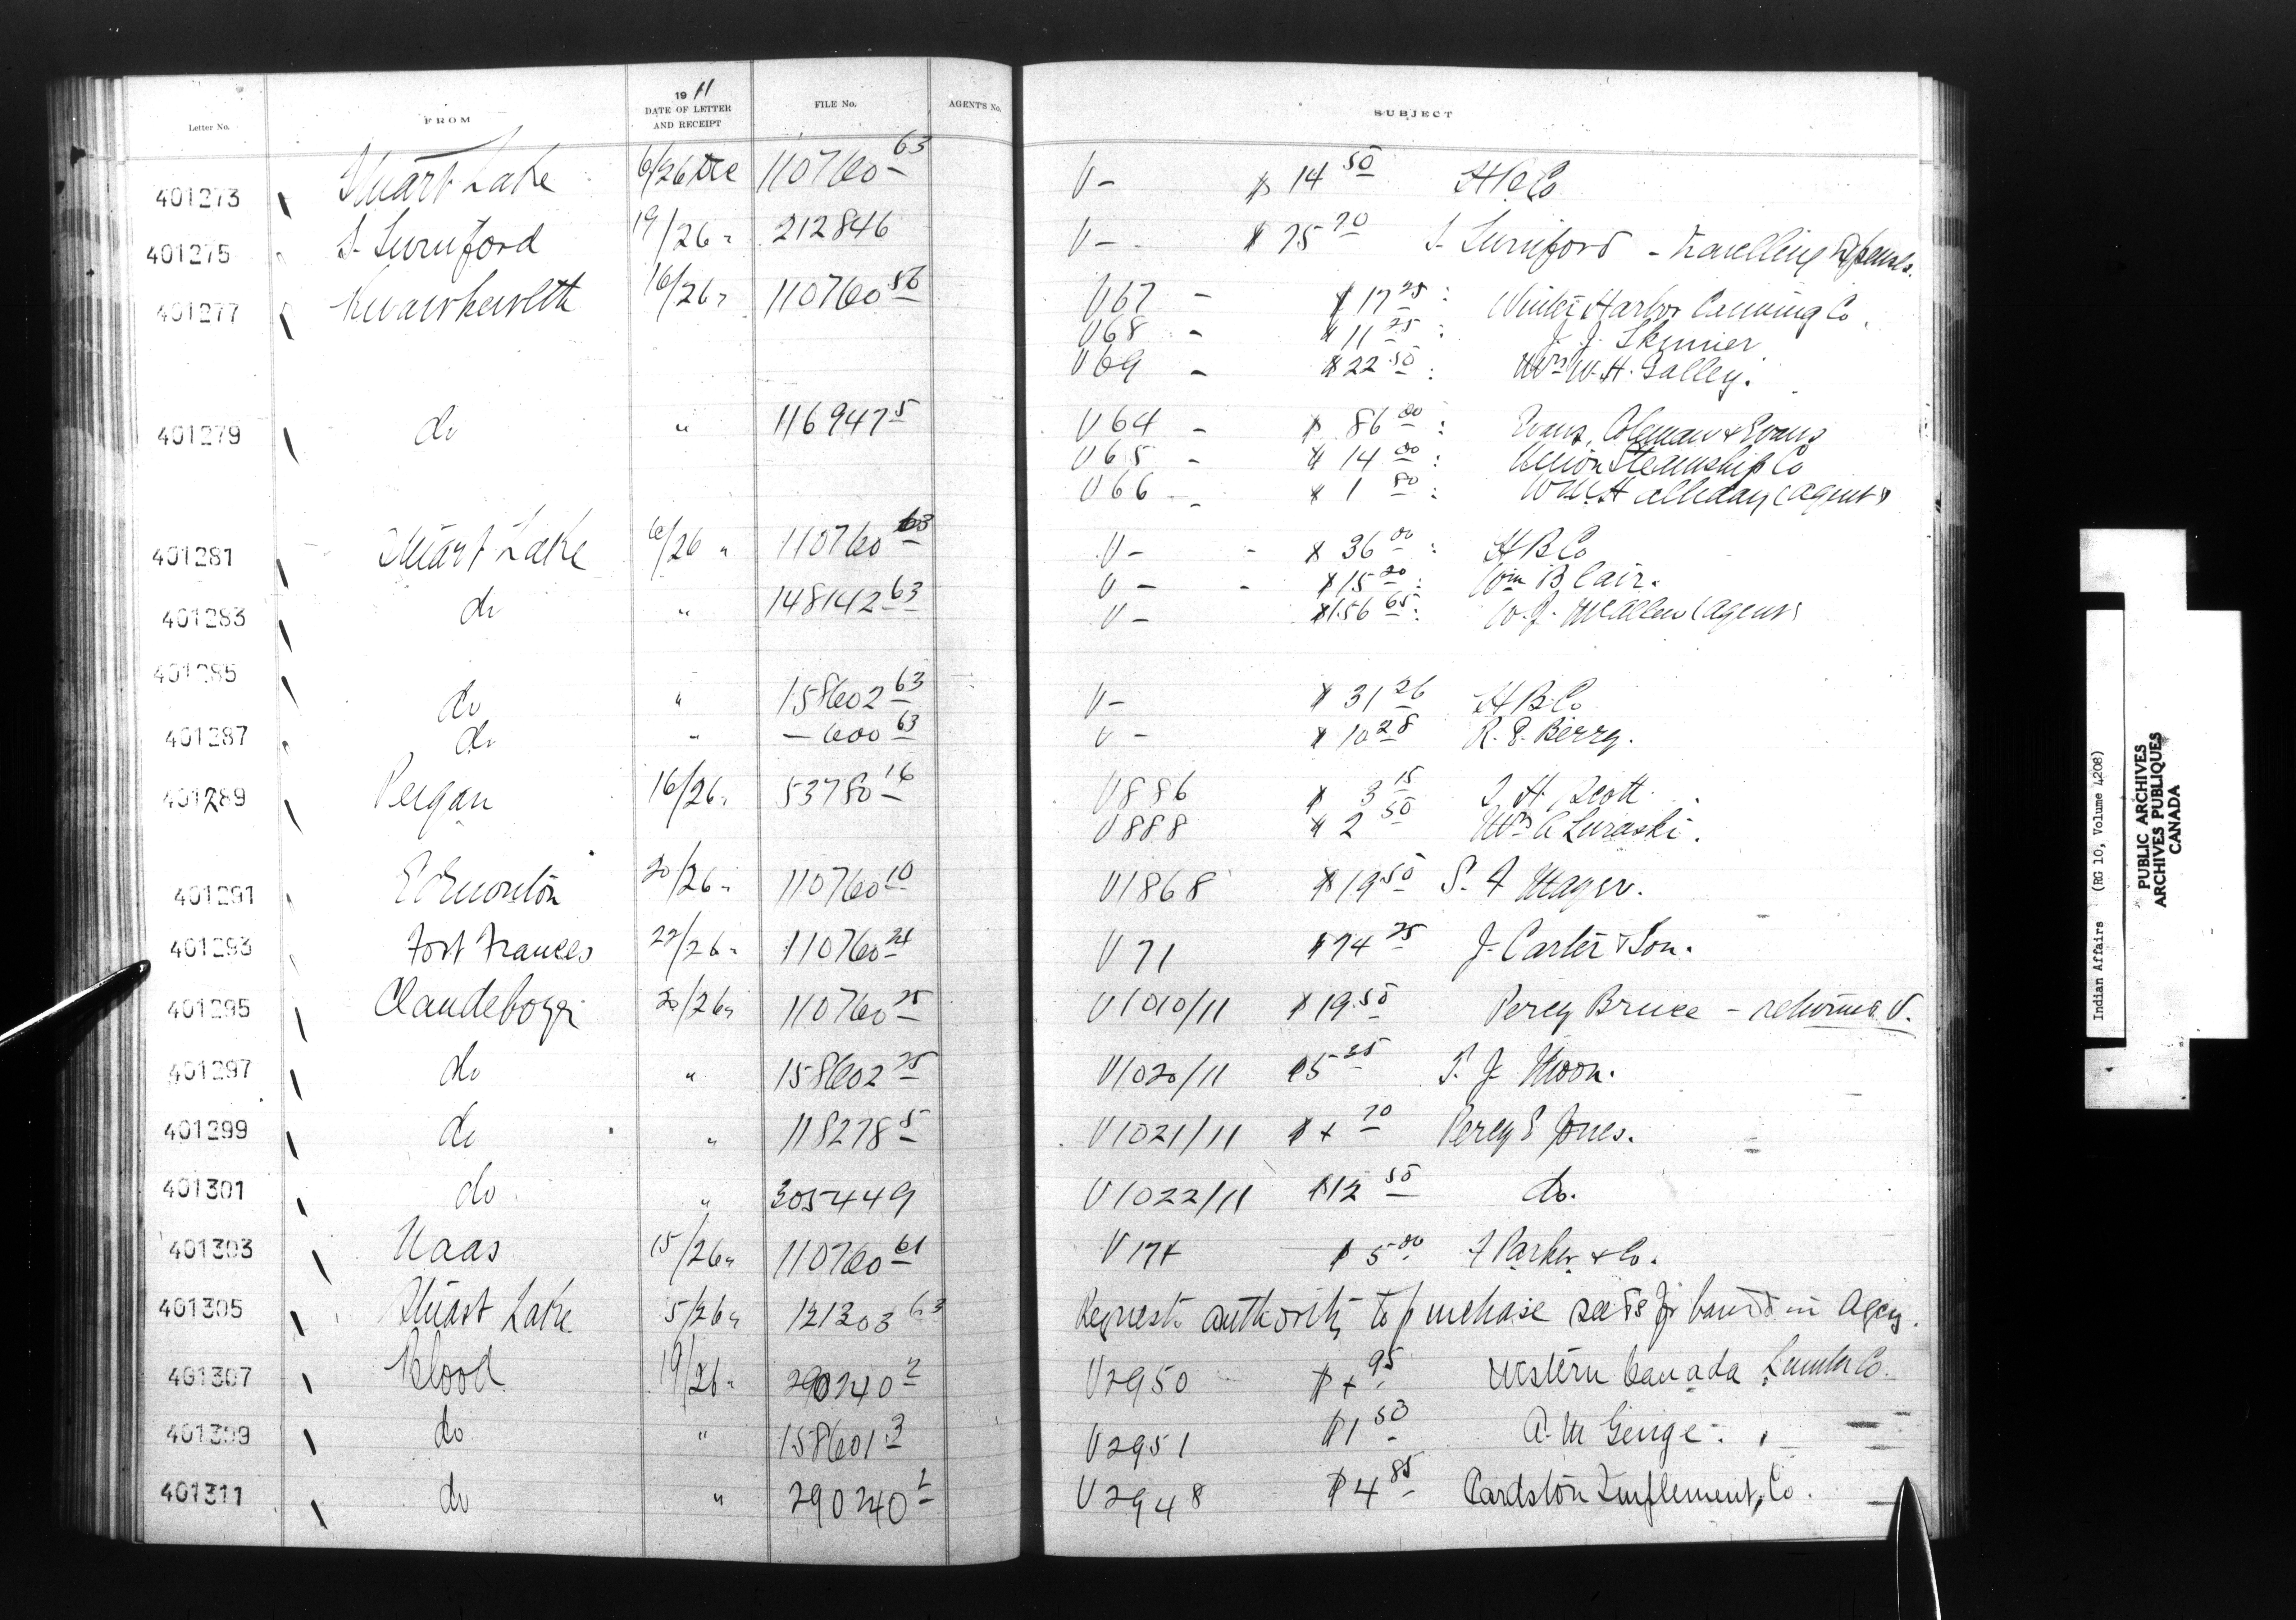 Letter No. FROM 1911 DATE OF LETTER AND RECEIPT FILE No. AGENT'S No. SUBJECT
401273 Stuart Lake 6/26 Dec 110760 63 V - $ 14 50 H B Co
401275 S. Swinford 19/26 " 212846 V - $ 75 70 S. Swinford - travelling expenses.
401277 Kwawkewlth 16/26 " 110760 56 V 67 - $ 17 25 : Winter Harbor Canning Co.
V 68 - $ 11 25 : J. J. Skinner
V 69 - $ 22 50 : Mrs W. H. Galley.
401279 do " 116947 5 V 64 - $ 86 00 : Evans, Coleman & Evans
V 65 - $ 14 00 : Union Steamship Co
V 66 - $ 1 80 : Wm H Halliday (agent)
401281 Stuart Lake 6/26 " 110760 63 V - - $ 36 00 : H B Co
V - - $ 15 20 : Wm Blair.
401283 do " 148142 63 V - $ 156 65 : W. J. McAllan (agent)
401285 do " 158602 63 V - $ 31 26 H B Co
401287 do " - 600 63 V - $ 10 28 R. E. Berry.
401289 Peigan 16/26 " 53780 16 V 886 $ 3 15 J. H. Scott
V 888 $ 2 50 Mrs A Luraski.
401291 Edmonton 20/26 " 110760 10 V 1868 $ 19 50 S. F Mayer.
401293 Fort Frances 22/26 " 110760 24 V 71 $ 74 25 J. Carter & Son.
401295 Clandeboye 20/26 " 110760 25 V 1010/11 $ 19 50 Percy Bruce - returned V.
401297 do " 158602 25 V 1020/11 $ 5 25 T. J. Moon.
401299 do " 118278 5 V 1021/11 $ 4 70 Percy E Jones.
401301 do " 305449 V 1022/11 $ 12 50 do.
401303 Naas 15/26 " 110760 61 V 174 $ 5 00 F Parker & Co.
401305 Stuart Lake 5/26 " 121303 63 Requests authority to purchase seeds for bands in Agcy.
401307 Blood 19/26 " 290240 2 V 2950 $ 4 95 Western Canada Lumber Co.
401309 do " 158601 3 V 2951 $ 1 50 A. M Genge.
401311 do " 290240 2 V 2948 $ 4 85 Cardston Implement, Co.
Indian Affairs (RG 10, Volume 4208)
PUBLIC ARCHIVES
ARCHIVES PUBLIQUES
CANADA